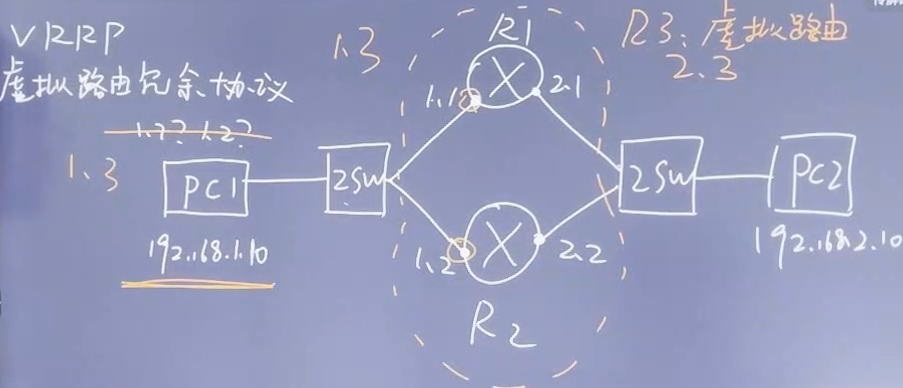 VRRP
虚拟路由冗余协议
1.1? 1.2?
1.3
PC1
192.168.1.10
2SW
1.3
R1
1.1
2.1
1.2
2.2
R2
R3:虚拟路由
2.3
2SW
PC2
192.168.2.10